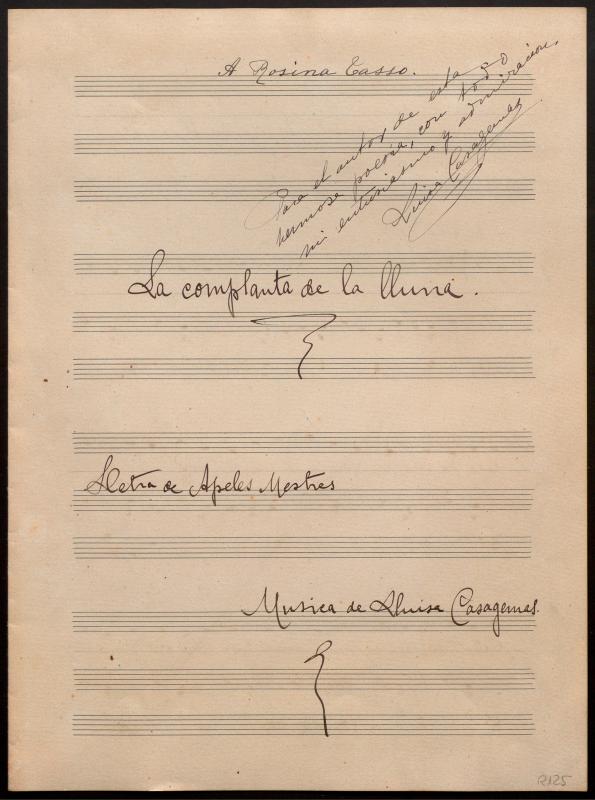 A Rosina Tasso.
Para el autor de esta
hermosa poesía, con todo
mi entusiasmo y admiración,
Luisa Casagemas
La complanta de la lluna.
Lletra de Apeles Mestres
Musica de Lluisa Casagemas.
R125